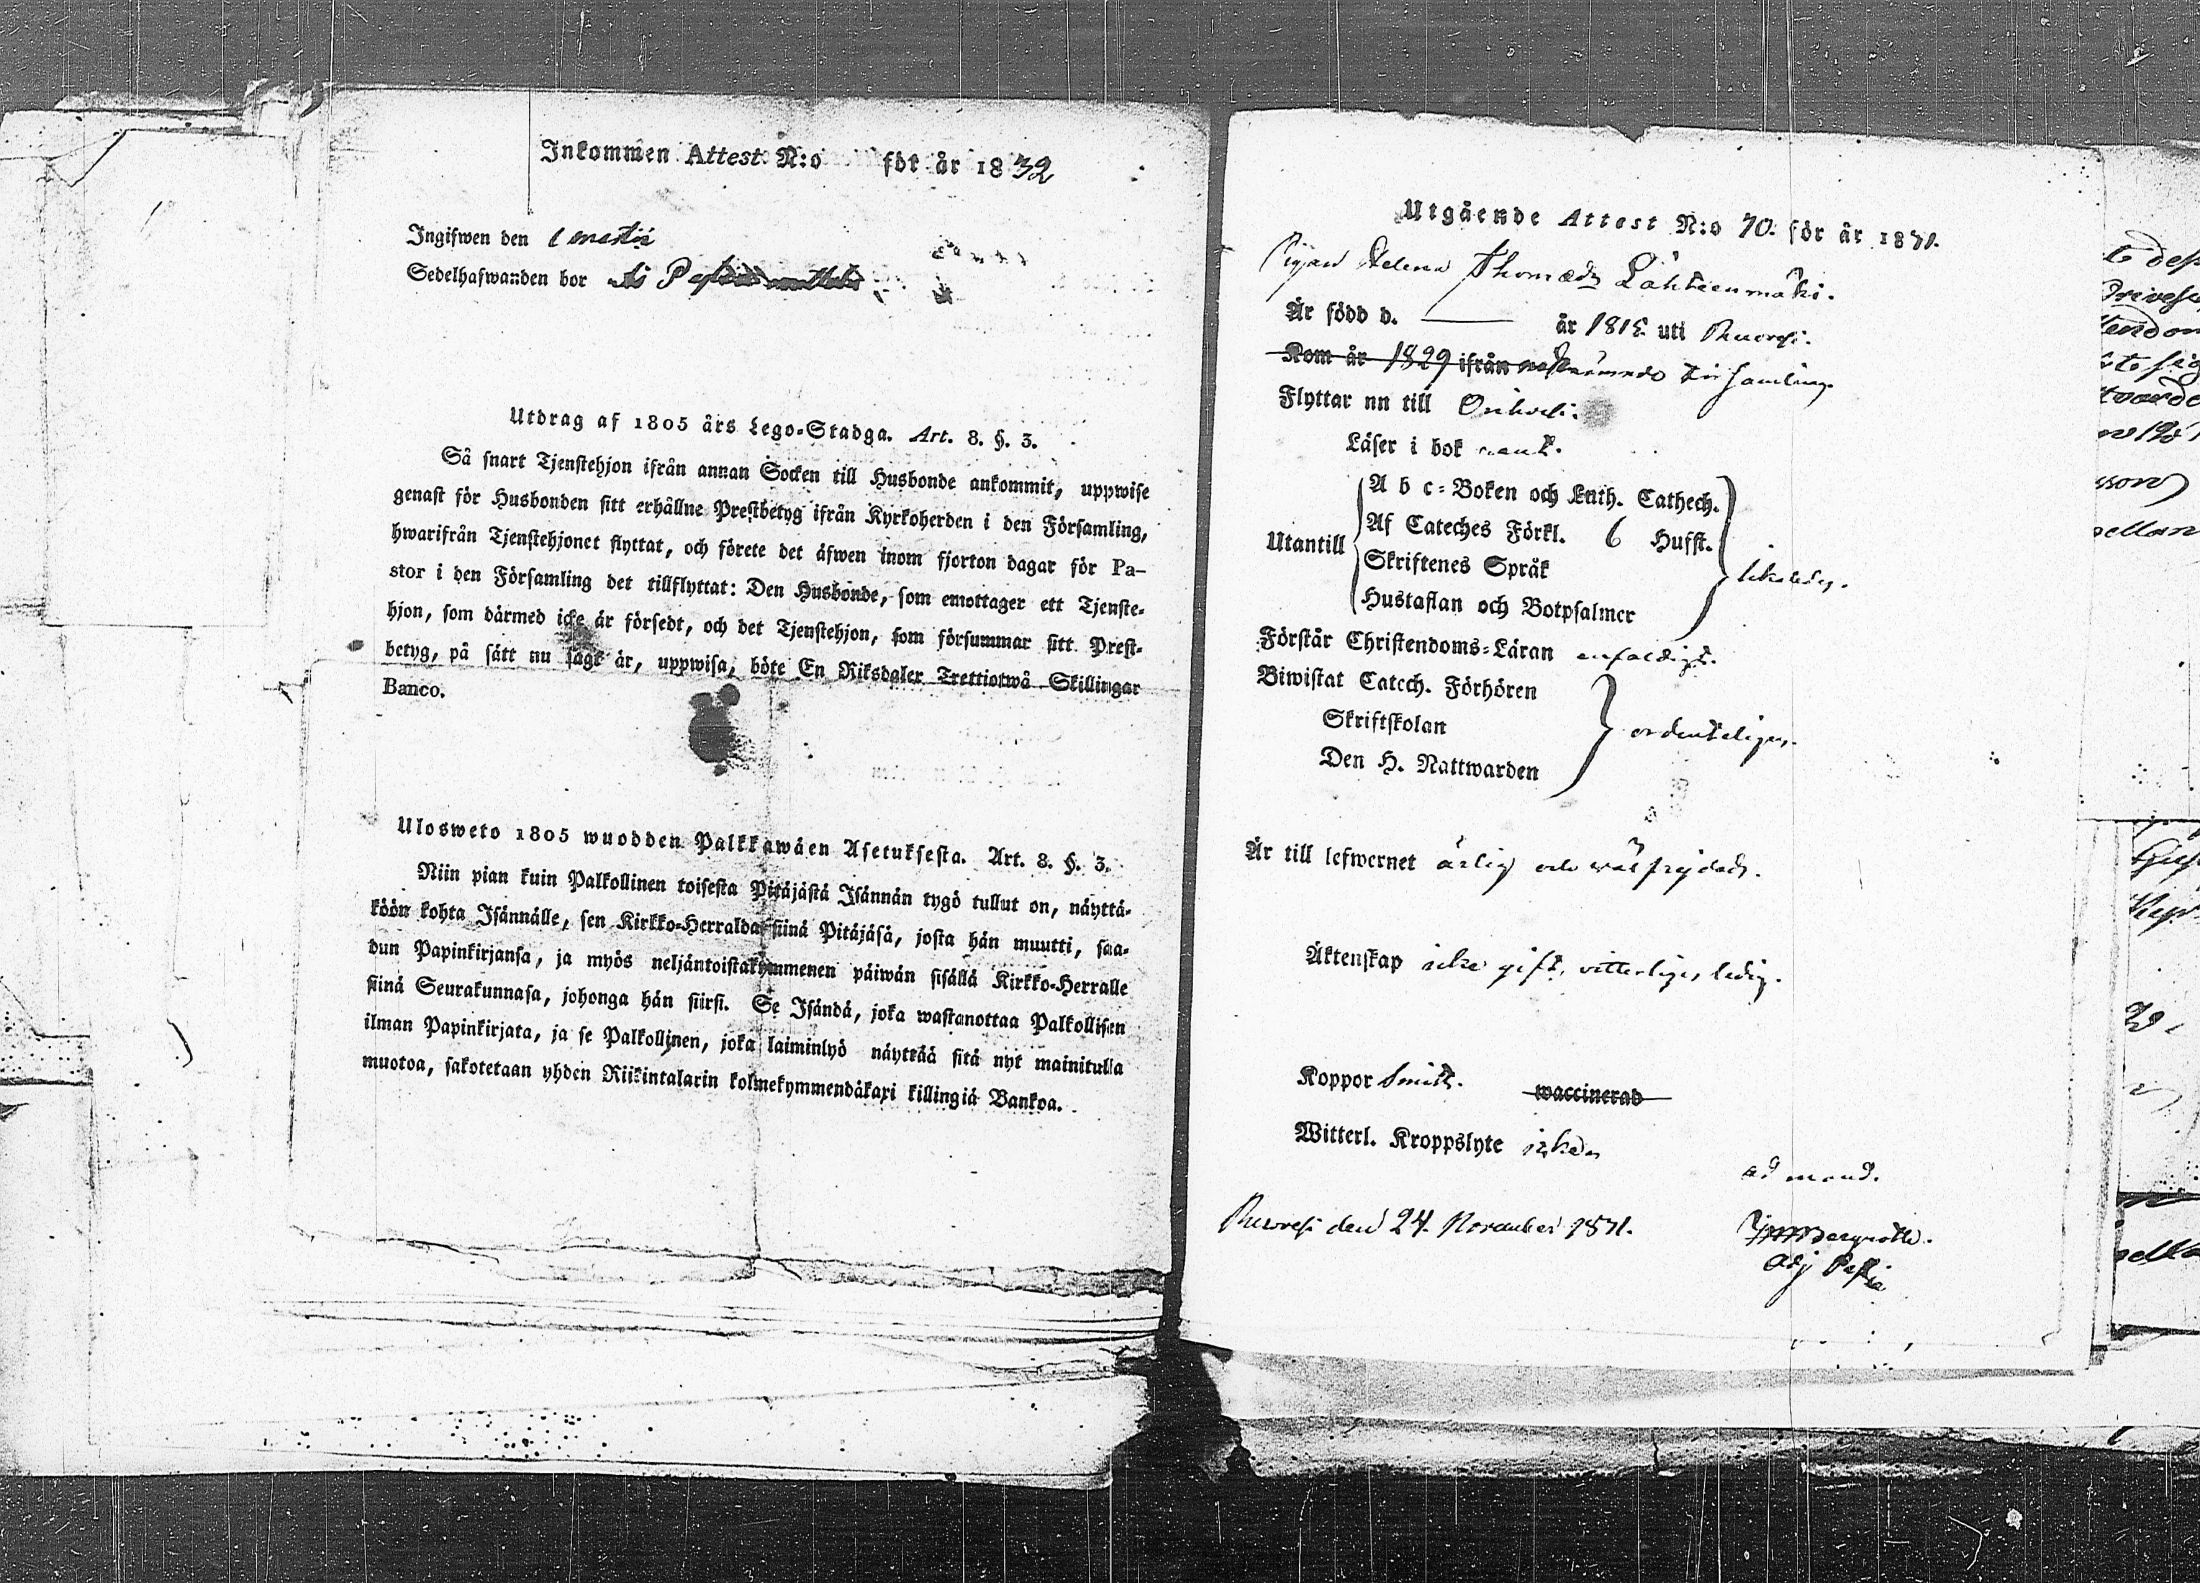 Inkommen Attest N:o för år 1832
Ingifwen den
Sedelhafwanden bor
Utdrag af 1805 års Lego-Stadga. Art. 8. §. 3.
Så snart Tjenstehjon ifrån annan Socken till Husbonde ankommit, uppwise
genast för Husbonden sitt erhållne Prestbetyg ifrån Kyrkoherden i den Församling,
hwarifrån Tjenstehjonet flyttat, och förete det äfwen inom fjorton dagar för Pa-
stor i den Församling det tillflyttat: Den Husbonde, som emottager ett Tjenste-
hjon, som därmed icke är försedt, och det Tjenstehjon, som försummar sitt Prest-
betyg, på sätt nu sagt är, uppwisa, böte En Riksdaler Trettiotwå Skillingar
Banco.
Ulosweto 1805 wuodden Palkkawäen Asetuksesta. Art. 8. §. 3.
Niin pian kuin Palkollinen toisesta Pitäjästä Isännän tygö tullut on, näyttä-
köön kohta Isännälle, sen Kirkko-Herralda siinä Pitäjäsä, josta hän muutti, saa-
dun Papinkirjansa, ja myös neljäntoistakymmenen päiwän sisällä Kirkko-Herralle
siinä Seurakunnasa, johonga hän siirsi. Se Isändä, joka wastanottaa Palkollisen
ilman Papinkirjata, ja se Palkollinen, joka laiminlyö näyttää sitä nyt mainitulla
muotoa, sakotetaan yhden Riikintalarin kolmekymmendäkaxi killingiä Bankoa.
Utgående Attest N:o 70. för år 1831.
Pigan Helena Thomædr Lähteenmäki.
Är född d. —— år 1815. uti Ruovesi.
Kom år 1829 ifrån församling
Flyttar nn till Orihvesi.
Läser i bok
A b c-Boken och Luth. Cathech.
Af Cateches Förkl. 6 Hufst.
Utantill
Skriftenes Språk
Hustaflan och Botpsalmer
Förstår Christendoms-Läran enfaldigt.
Biwistat Catech. Förhören
Skriftskolan
ordenteligen.
Den H. Nattwarden
Är till lefwernet ärlig och wälfrejdad.
Äktenskap icke gift, vitterligen ledig.
Koppor haft. waccinerad
Witterl. Kroppslyte
ad mand.
Ruovesi den 24. November 1831.
Bergroth.
Adj